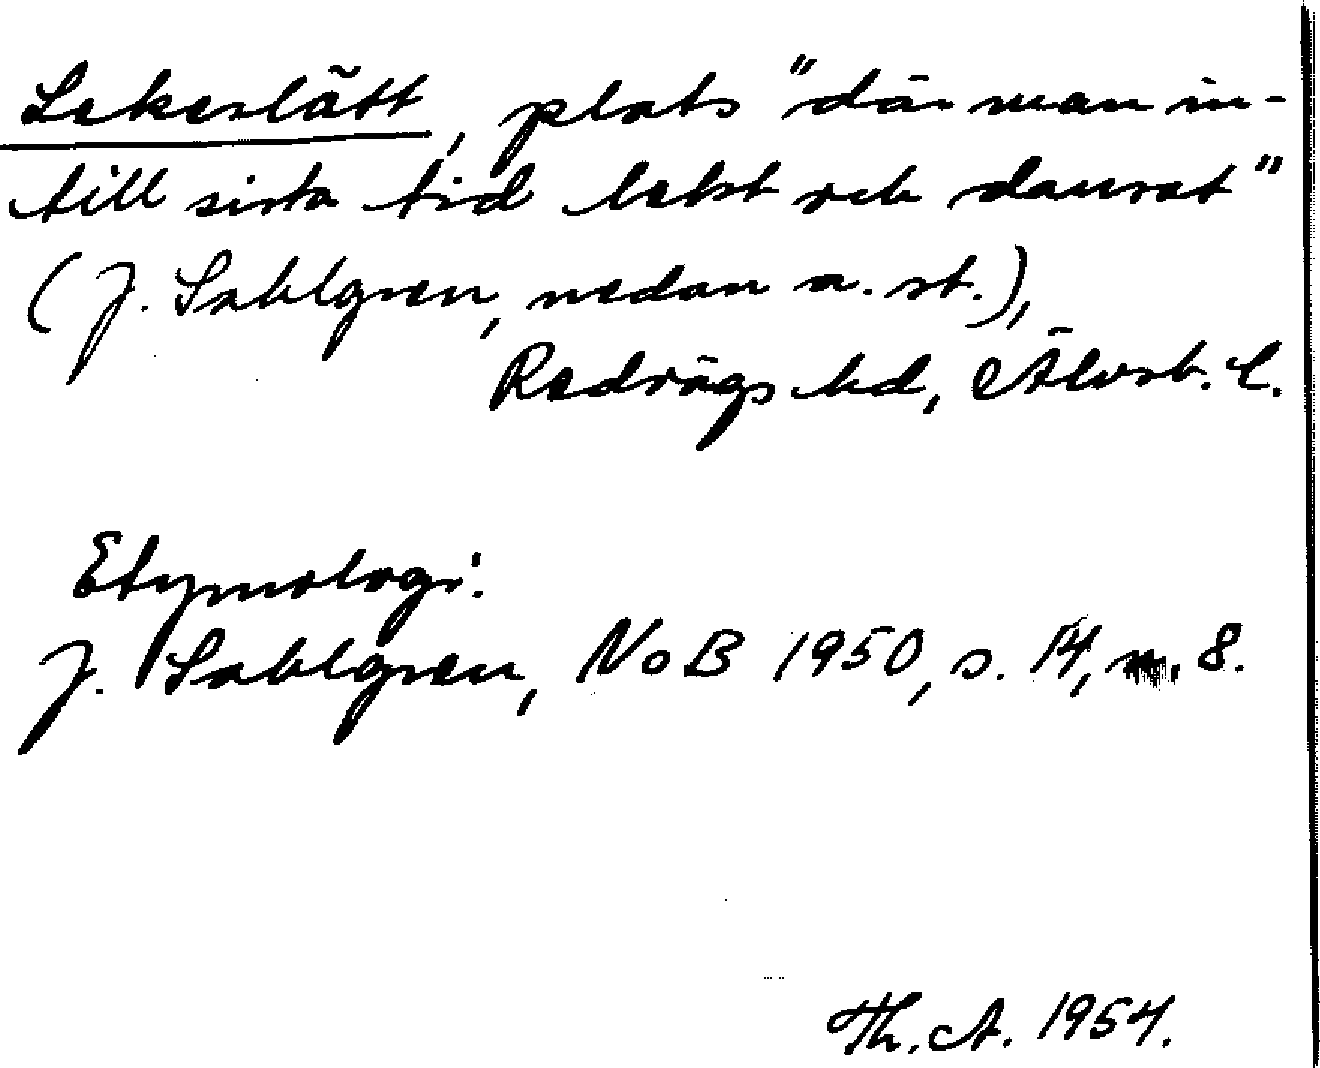 Lekeslätt, plats "där man in-
till sista tid lekt och dansat"
(J. Sahlgren, nedan a. st.),
Redvägs hd, Älvsb. l.
Etymologi:
J. Sahlgren, NoB 1950, s. 14, n. 8.
Th. A. 1954.